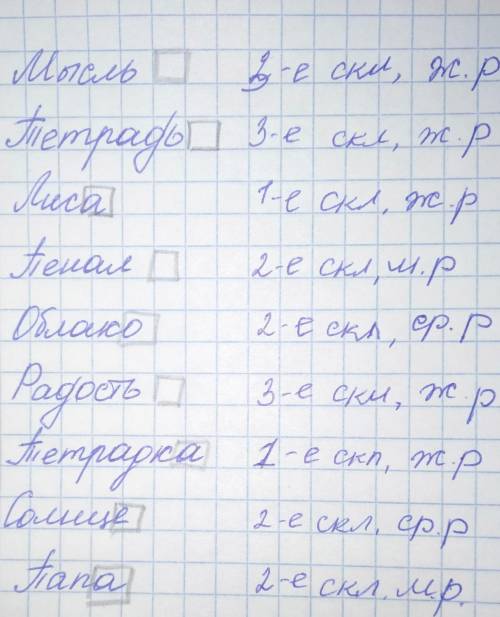 Мысль 3-е скл, ж.р
Тетрадь 3-е скл, ж.р
Лиса 1-е скл, ж.р
Пенал 2-е скл, м.р
Облако 2-е скл, ср.р
Радость 3-е скл, ж.р
Тетрадка 1-е скл, ж.р
Солнце 2-е скл, ср.р
Папа 2-е скл. м.р.